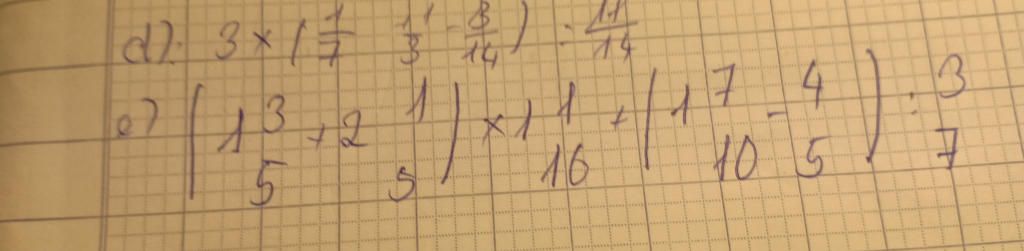 d). 3 × (1/7 11/3 - 8/14) : 11/14
e) (1 3/5 + 2 1/5) × 1 1/16 + (1 7/10 - 4/5) : 3/7